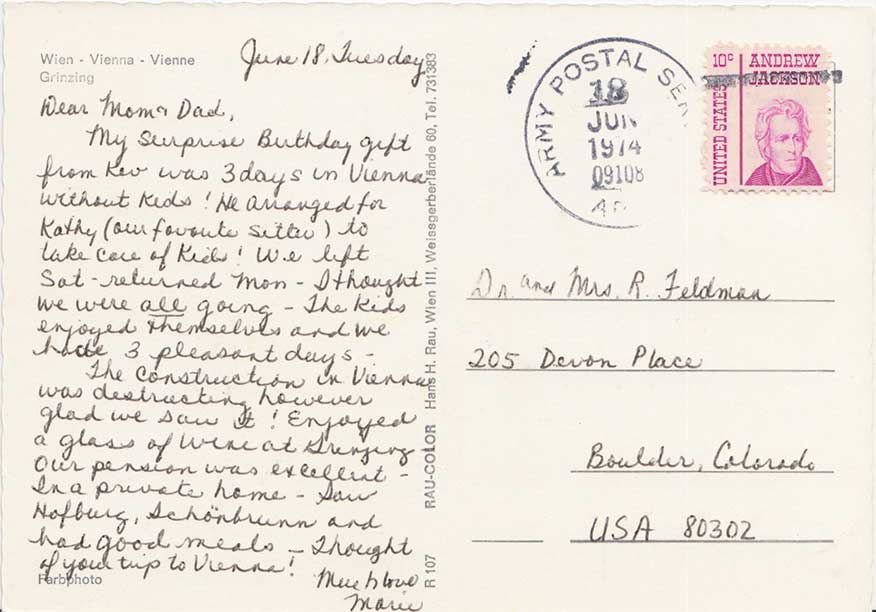 Wien - Vienna - Vienne
Grinzing
June 18, Tuesday
Dear Mom & Dad,
My surprise Birthday gift
from Kev was 3 days in Vienna
without kids! He arranged for
Kathy (our favorite sitter) to
take care of Kids! We left
Sat - returned Mon - I thought
we were all going - The Kids
enjoyed themselves and we
had 3 pleasant days -
The construction in Vienna
was destructing however
glad we saw it! Enjoyed
a glass of wine at Grinzing
Our pension was excellent -
In a private home - Saw
Hofburg, Schönbrunn and
had good meals - Thought
of your trip to Vienna!
Much love
Marie
Farbphoto
R 107 RAU-COLOR Hans H. Rau, Wien III, Weissgerberlände 60, Tel. 731383
ARMY POSTAL SER
18
JUN
1974
09108
AP
10c ANDREW
JACKSON
UNITED STATES
Dr. and Mrs. R. Feldman
205 Devon Place
Boulder, Colorado
USA 80302